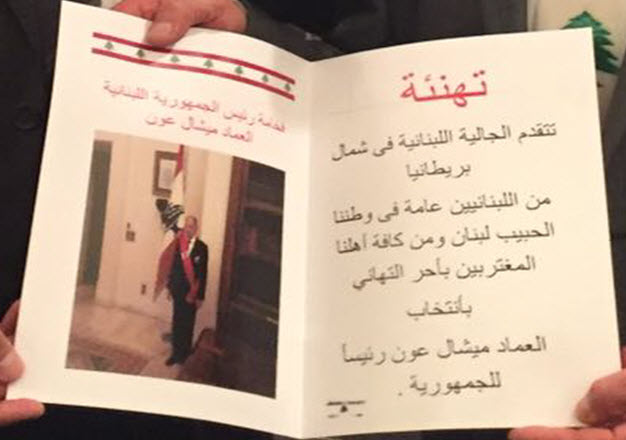 تهنئة
تتقدم الجالية اللبنانية فى شمال
بريطانيا
من اللبنانيين عامة فى وطننا
الحبيب لبنان ومن كافة أهلنا
المغتربين بأحر التهاني
بأنتخاب
العماد ميشال عون رئيساً
للجمهورية .
فخامة رئيس الجمهورية اللبنانية
العماد ميشال عون